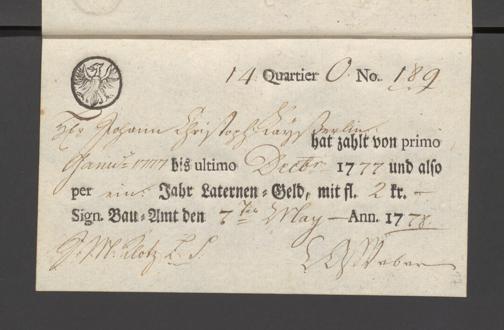 14 Quartier O. No. 189
Hr Johann Christoph Kayß
hat zahlt von primo
Januʳ 1777 bis ultimo Decbr 1777 und also
per ein Jahr Laternen-Geld, mit fl. 2 kr. —
Sign. Bau-Amt den 7ten May — Ann. 1778.